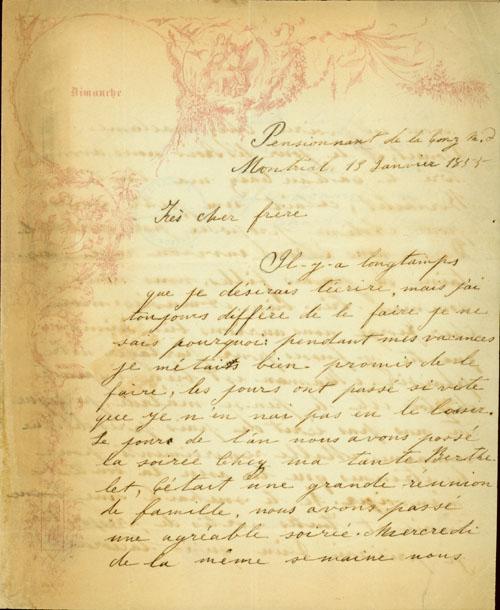 Dimanche
Pensionnant de la Cong N. D
Montréal 13 Janvier 1855
Très cher frère
Il-y-a longtamps
que je désirais t'ecrire, mais j'ai
toujours différé de le faire je ne
sais pourquoi: pendant mes vacances
je m'étais bien promis de le
faire, les jours ont passé si vite
que je n'en nai pas eu le loisir,
Le jour de l'an nous avons passé
la soirée chez ma tante Berthe
let, c'était une grande réunion
de famille, nous avons passé
une agréable soirée. Mercredi
de la même semaine nous